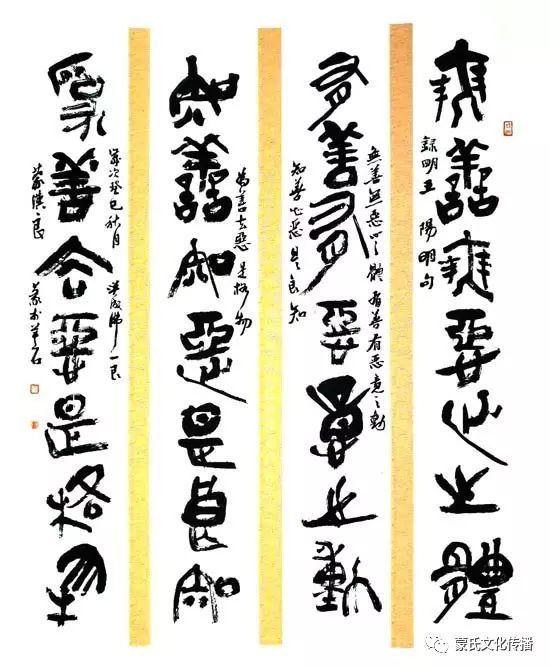 無善無惡心之體
錄明王陽明句
有善有惡意之動
無善無惡心之體 有善有惡意之動
知善知惡是良知
知善惡是良知
為善去惡是格物
為善去惡是格物
歲次癸巳秋月
蒙漢良
蒙氏文化传播